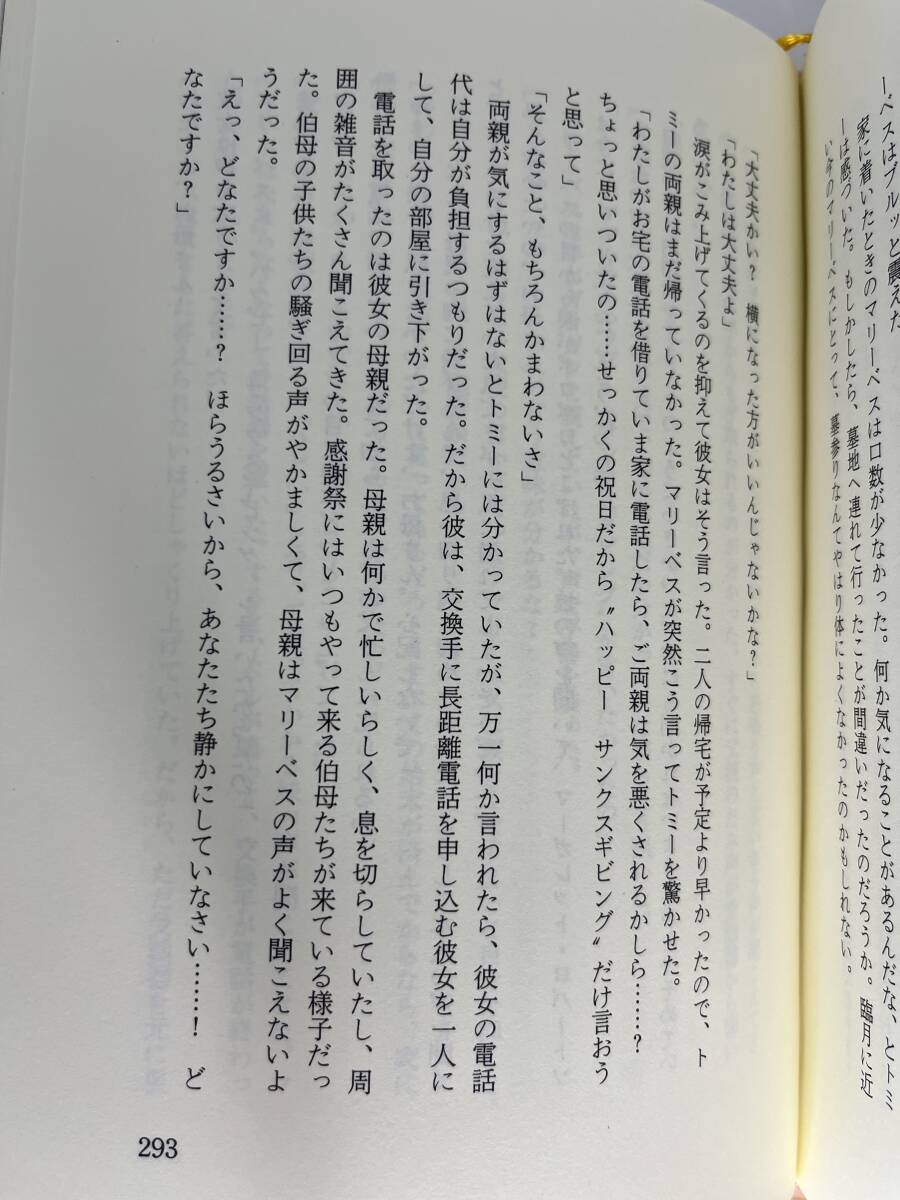 ーベスはブルッと震えた
家に着いたときのマリーベスは口数が少なかった。何か気になることがあるんだな、とトミ
ーは感づいた。もしかしたら、墓地へ連れて行ったことが間違いだったのだろうか。臨月に近
い今のマリーベスにとって、墓参りなんてやはり体によくなかったのかもしれない。
「大丈夫かい？　横になった方がいいんじゃないかな？」
「わたしは大丈夫よ」
涙がこみ上げてくるのを抑えて彼女はそう言った。二人の帰宅が予定より早かったので、ト
ミーの両親はまだ帰っていなかった。マリーベスが突然こう言ってトミーを驚かせた。
「わたしがお宅の電話を借りていま家に電話したら、ご両親は気を悪くされるかしら……？
ちょっと思いついたの……せっかくの祝日だから〝ハッピー　サンクスギビング〟だけ言おう
と思って」
「そんなこと、もちろんかまわないさ」
両親が気にするはずはないとトミーには分かっていたが、万一何か言われたら、彼女の電話
代は自分が負担するつもりだった。だから彼は、交換手に長距離電話を申し込む彼女を一人に
して、自分の部屋に引き下がった。
電話を取ったのは彼女の母親だった。母親は何かで忙しいらしく、息を切らしていたし、周
囲の雑音がたくさん聞こえてきた。感謝祭にはいつもやって来る伯母たちが来ている様子だっ
た。伯母の子供たちの騒ぎ回る声がやかましくて、母親はマリーベスの声がよく聞こえないよ
うだった。
「えっ、どなたですか……？　ほらうるさいから、あなたたち静かにしていなさい……！　ど
なたですか？」
293